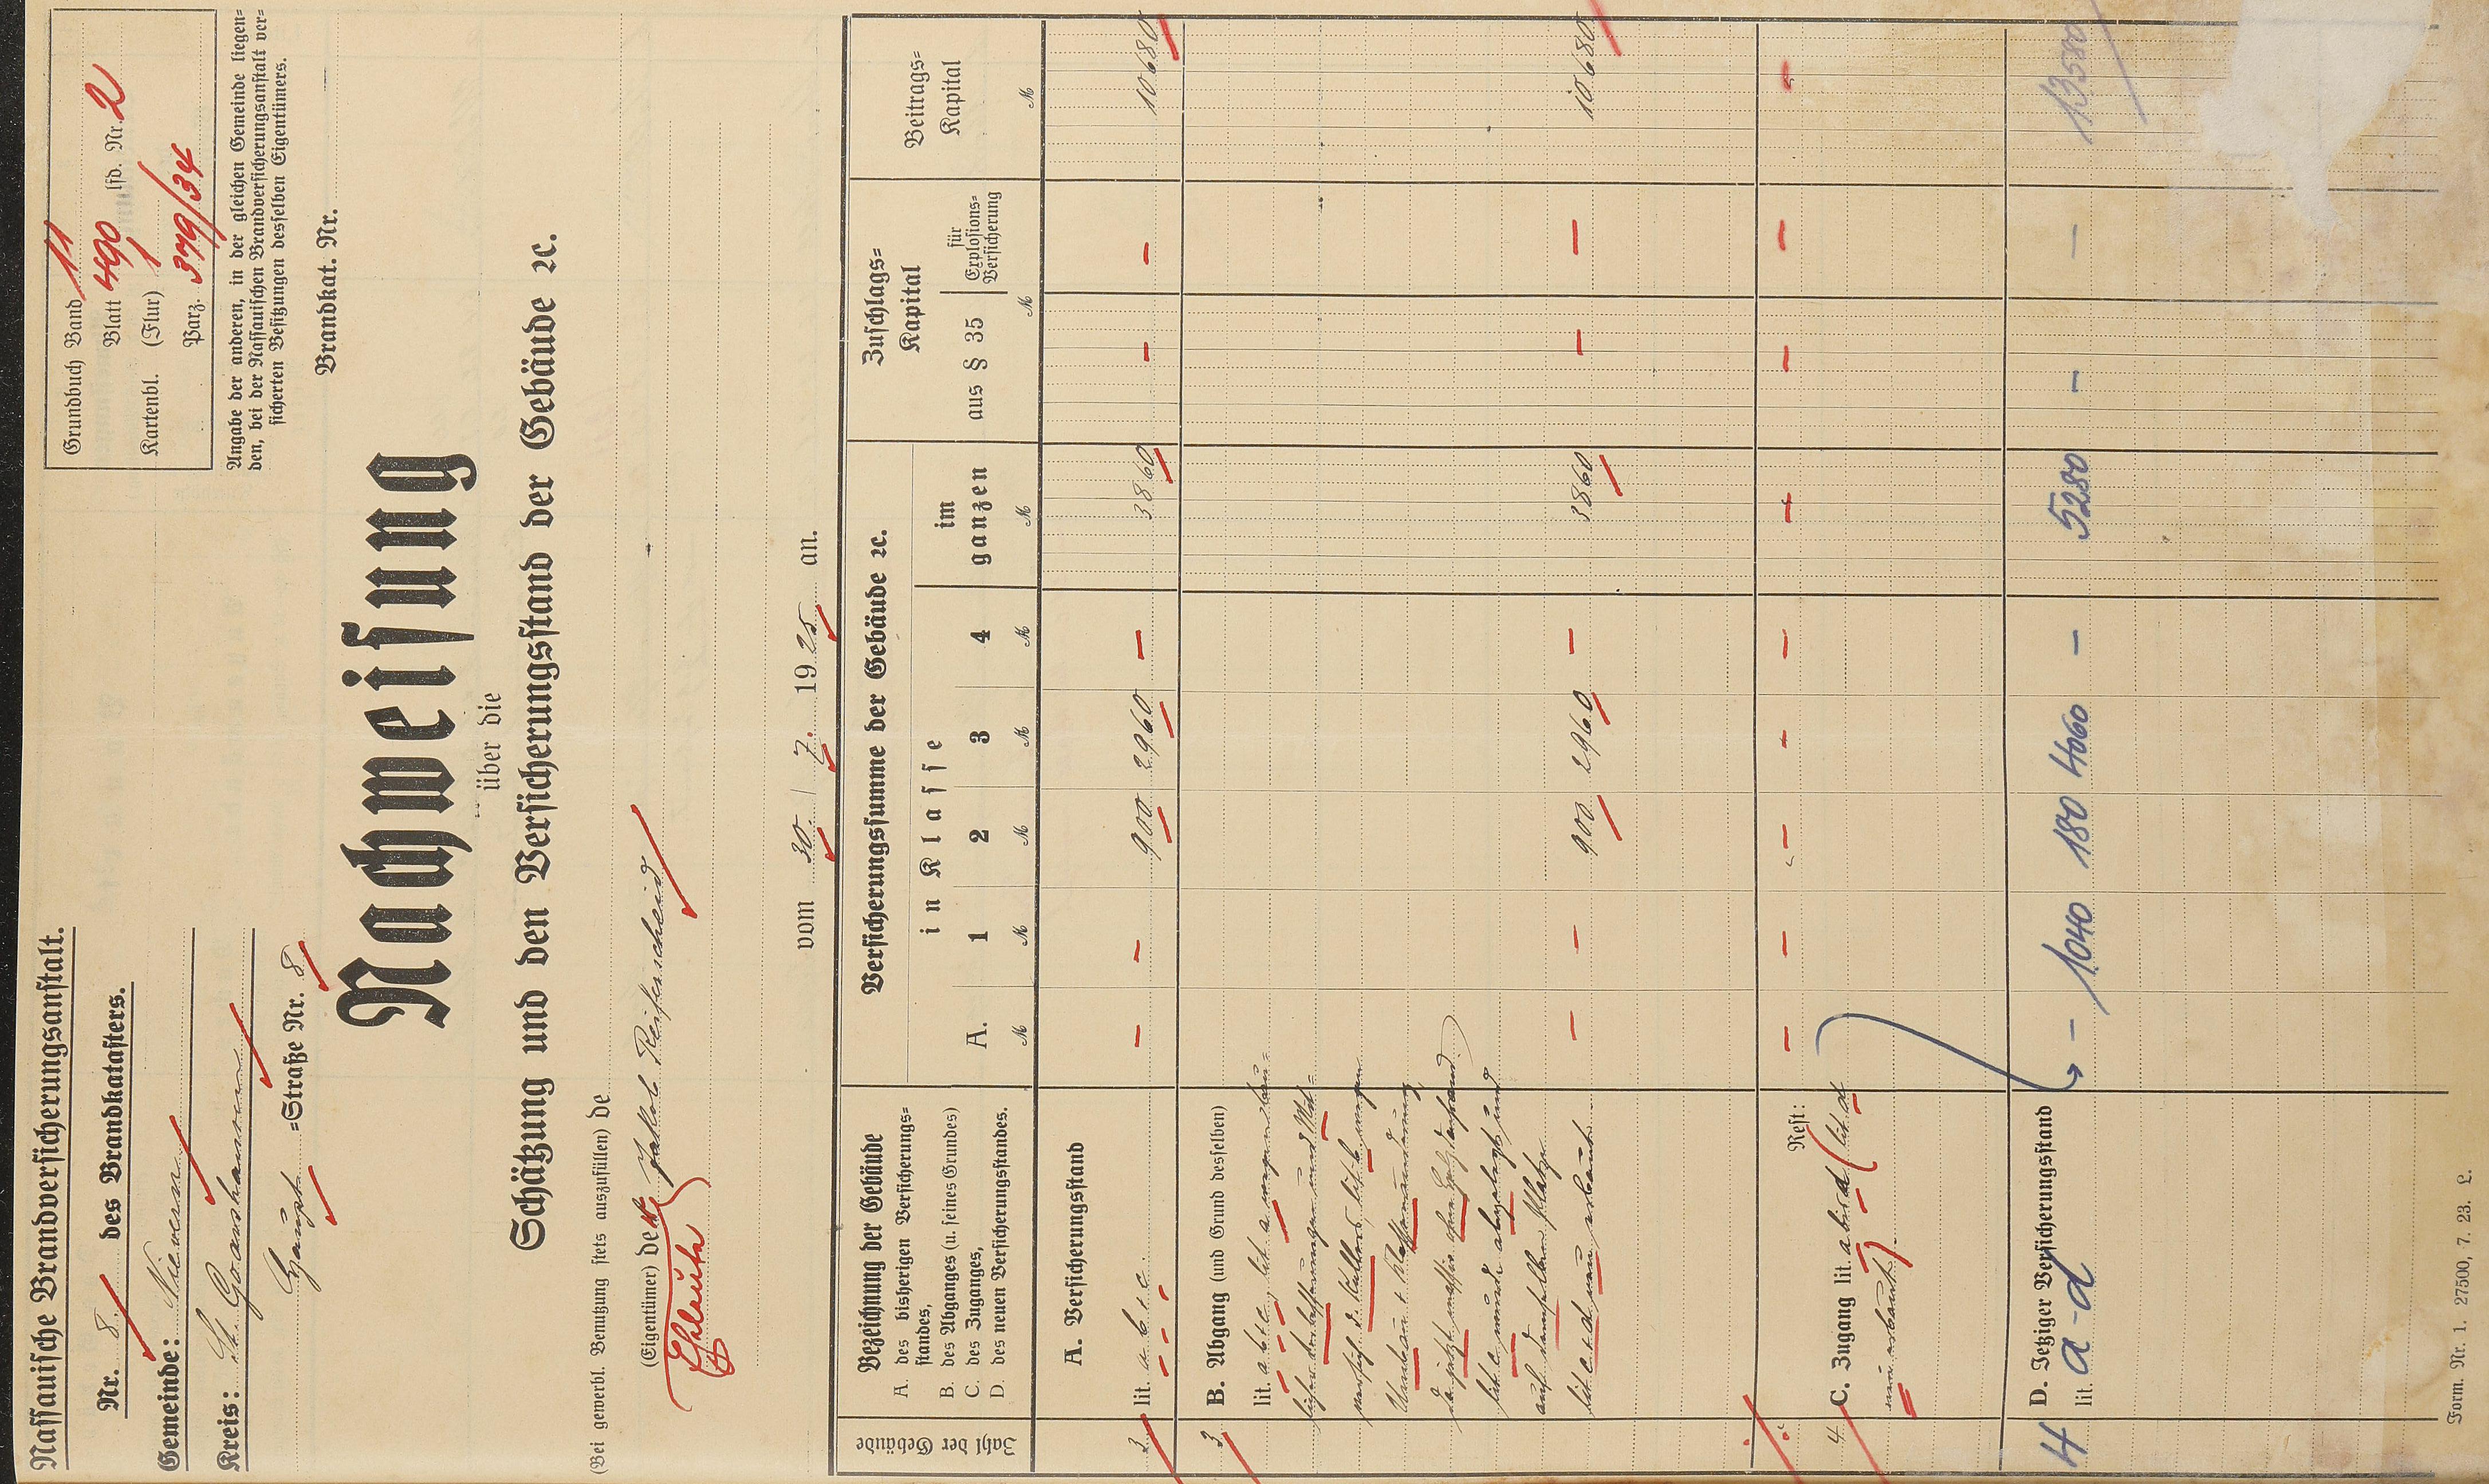 Nassauische Brandversicherungsanstalt.
Nr. 8. des Brandkatasters.
Gemeinde: Nievern
Kreis: St. Goarshausen
Haupt =Straße Nr. 8
Grundbuch Band 11
Blatt 490 lfd. Nr. 2
Kartenbl. (Flur) 1
Parz. 379/34
Angabe der anderen, in der gleichen Gemeinde liegen=
den, bei der Nassauischen Brandversicherungsanstalt ver=
sicherten Besitzungen desselben Eigentümers.
Brandkat. Nr.
Nachweisung
über die
Schätzung und den Versicherungsstand der Gebäude ꝛc.
(Bei gewerbl. Benutzung stets auszufüllen) de
(Eigentümer) der Jakob Reifenscheid
Eheleute
vom 30. 7. 1925 an.
Zahl der Gebäude
Bezeichnung der Gebäude
A. des bisherigen Versicherungs=
standes,
B. des Abganges (u. seines Grundes)
C. des Zuganges,
D. des neuen Versicherungsstandes.
Versicherungssumme der Gebäude ꝛc.
in Klasse
A. 1 2 3 4
im
ganzen
Zuschlags=
Kapital
aus § 35
für
Explosions=
Versicherung
Beitrags=
Kapital
M M M M M M M M
A. Versicherungsstand
3 lit. a. b. + c. — — 900 2960 — 3860 — — 10680
B. Abgang (und Grund desselben)
3 lit. a. b. + c., lit. a wegen bau=
auf demselben Platze
lit. c + d neu erbaut. — — 900 2960 — 3860 — — 10680
Rest: — — — — — — — — —
4 C. Zugang lit. a bis d (lit. d
neu erbaut).
D. Jetziger Versicherungsstand
4 lit. a - d — 1040 180 4060 — 5280 — — 13580
Form. Nr. 1. 27500, 7. 23. L.